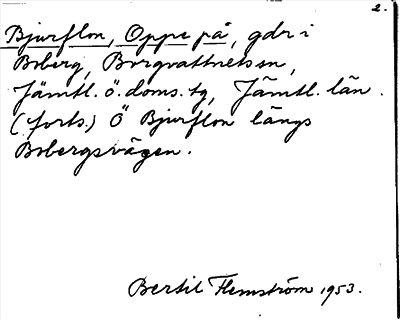 2.
Bjurflon, Oppe på, gdr i
Boberg, Borgvattnets sn,
Jämtl. ö. doms. tg, Jämtl. län.
(forts.) Ö Bjurflon längs
Bobergsvägen.
Bertil Flemström 1953.